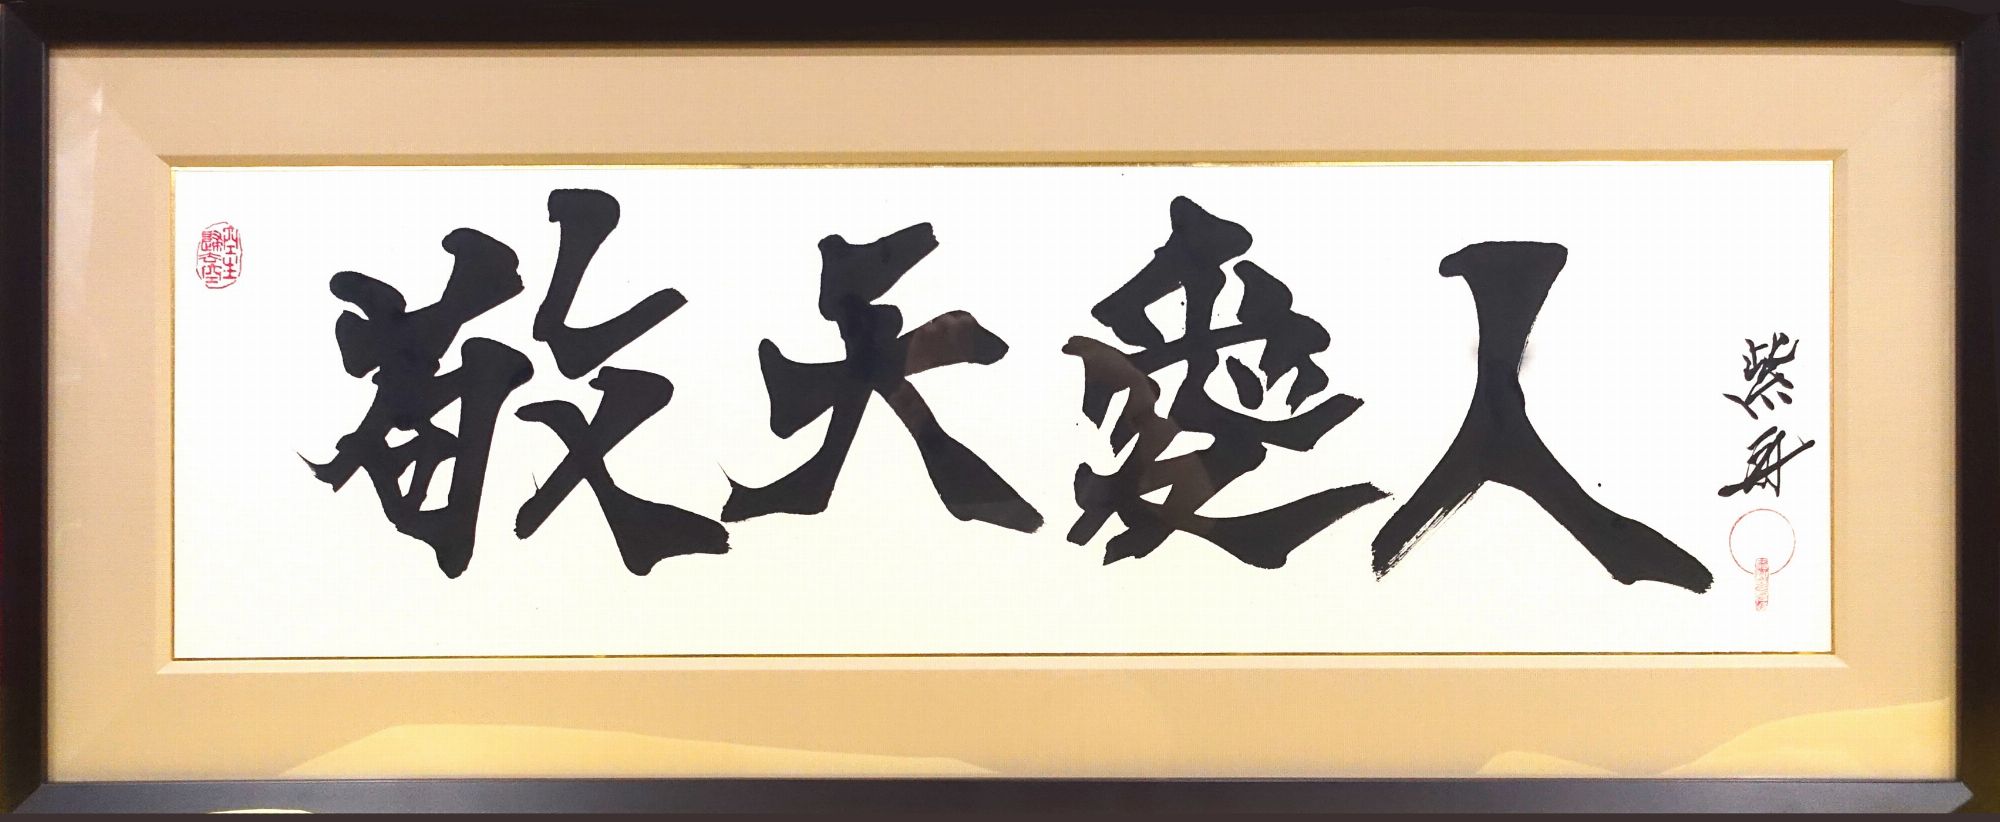 敬天愛人
紫舟